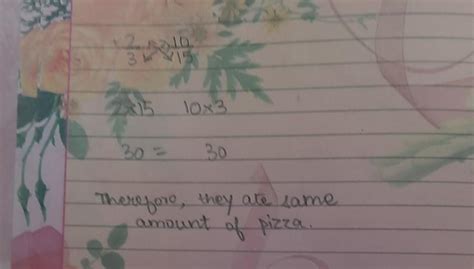 2/3 10/15
2×15 10×3
30 = 30
Therefore, they ate same
amount of pizza.